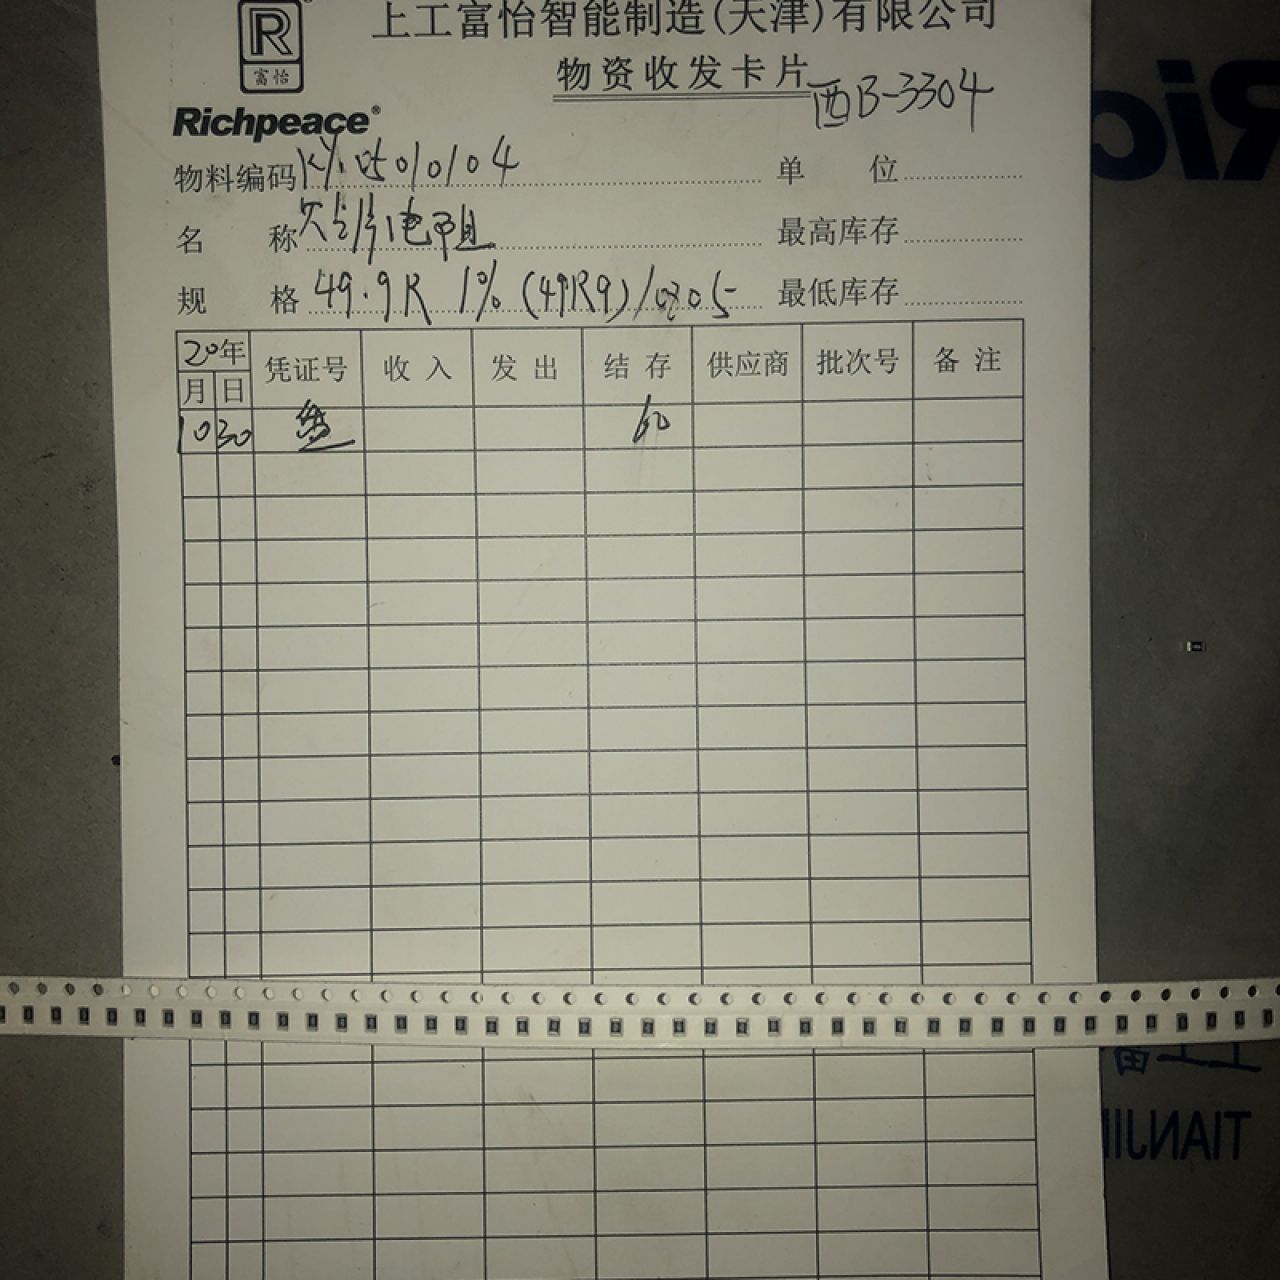 R
富怡
Richpeace®
上工富怡智能制造(天津)有限公司
物资收发卡片
西B-3304
物料编码 单位
名称 电阻 最高库存
规格 49.9R 1% (49R9)/0805 最低库存
20年 凭证号 收入 发出 结存 供应商 批次号 备注
月 日
10 30 盘 60
Ric
TIANJI